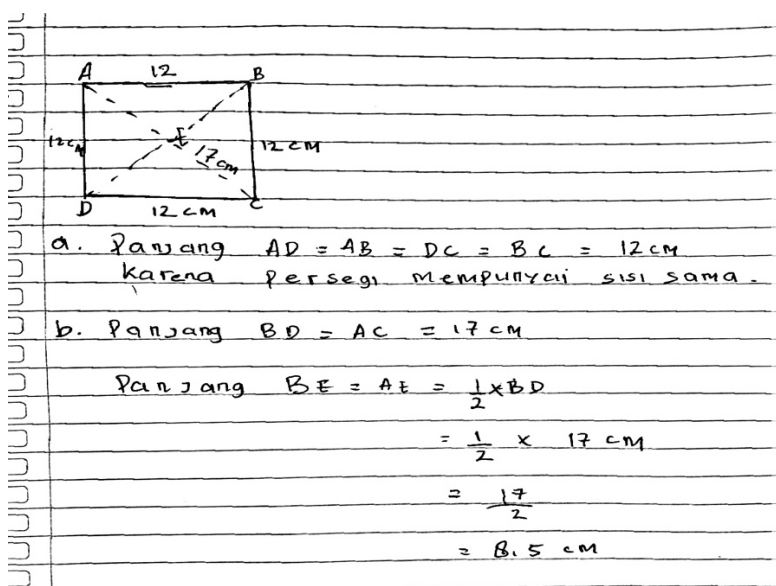 A 12 B
12 cm E 17 cm 12 cm
D 12 cm C
a. Panjang AD = AB = DC = BC = 12 cm
karena persegi mempunyai sisi sama.
b. Panjang BD = AC = 17 cm
Panjang BE = AE = 1/2 × BD
= 1/2 × 17 cm
= 17/2
= 8,5 cm